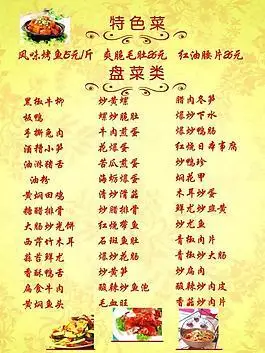 特色菜
风味烤鱼5元/斤 爽脆毛肚26元 红油腰片26元
盘菜类
黑椒牛柳 炒黄螺 腊肉冬笋
板鸭 螺炒脆肚 爆炒下水
手撕兔肉 牛肉煎蛋 爆炒鸭肠
酒糟小笋 花爆蛋 红烧日本豆腐
油淋猪舌 苦瓜煎蛋 炒鸭珍
油粉 海蛎爆蛋 焖花甲
黄焖田鸡 清炒滑菇 木耳炒蛋
糖醋排骨 炒腊排骨 鲜尤炒韭黄
大肠炒光饼 红烧带鱼 炒尤鱼
西芹竹木耳 石斑鱼肚 青椒肉片
蒜苔鲜尤 爆炒花肠 青椒炒大肠
香酥鸭舌 炒黄笋 炒扁肉
扁食牛肉 酸辣炒鱼泡 酸辣炒肉皮
黄焖鱼头 毛血旺 香菇炒肉片